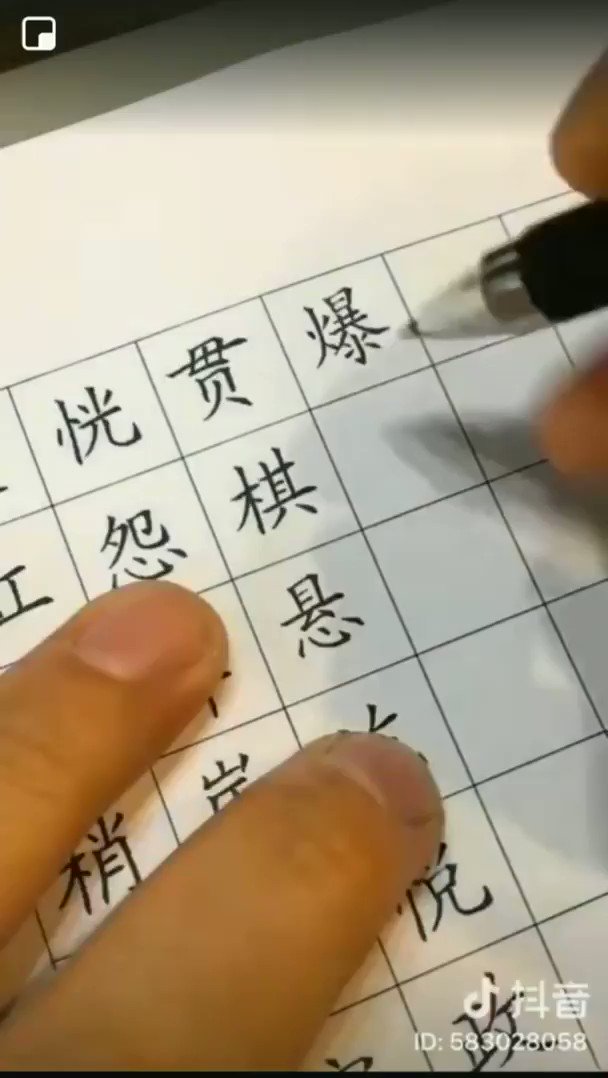 恍 贯 爆
怨 棋
悬
梢
悦
政
抖音
ID: 583028058